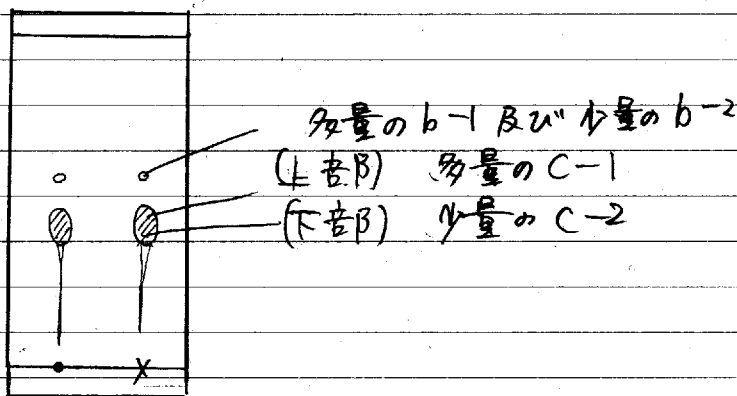 多量の b-1 及び 少量の b-2
(上部) 多量の C-1
(下部) 少量の C-2
X